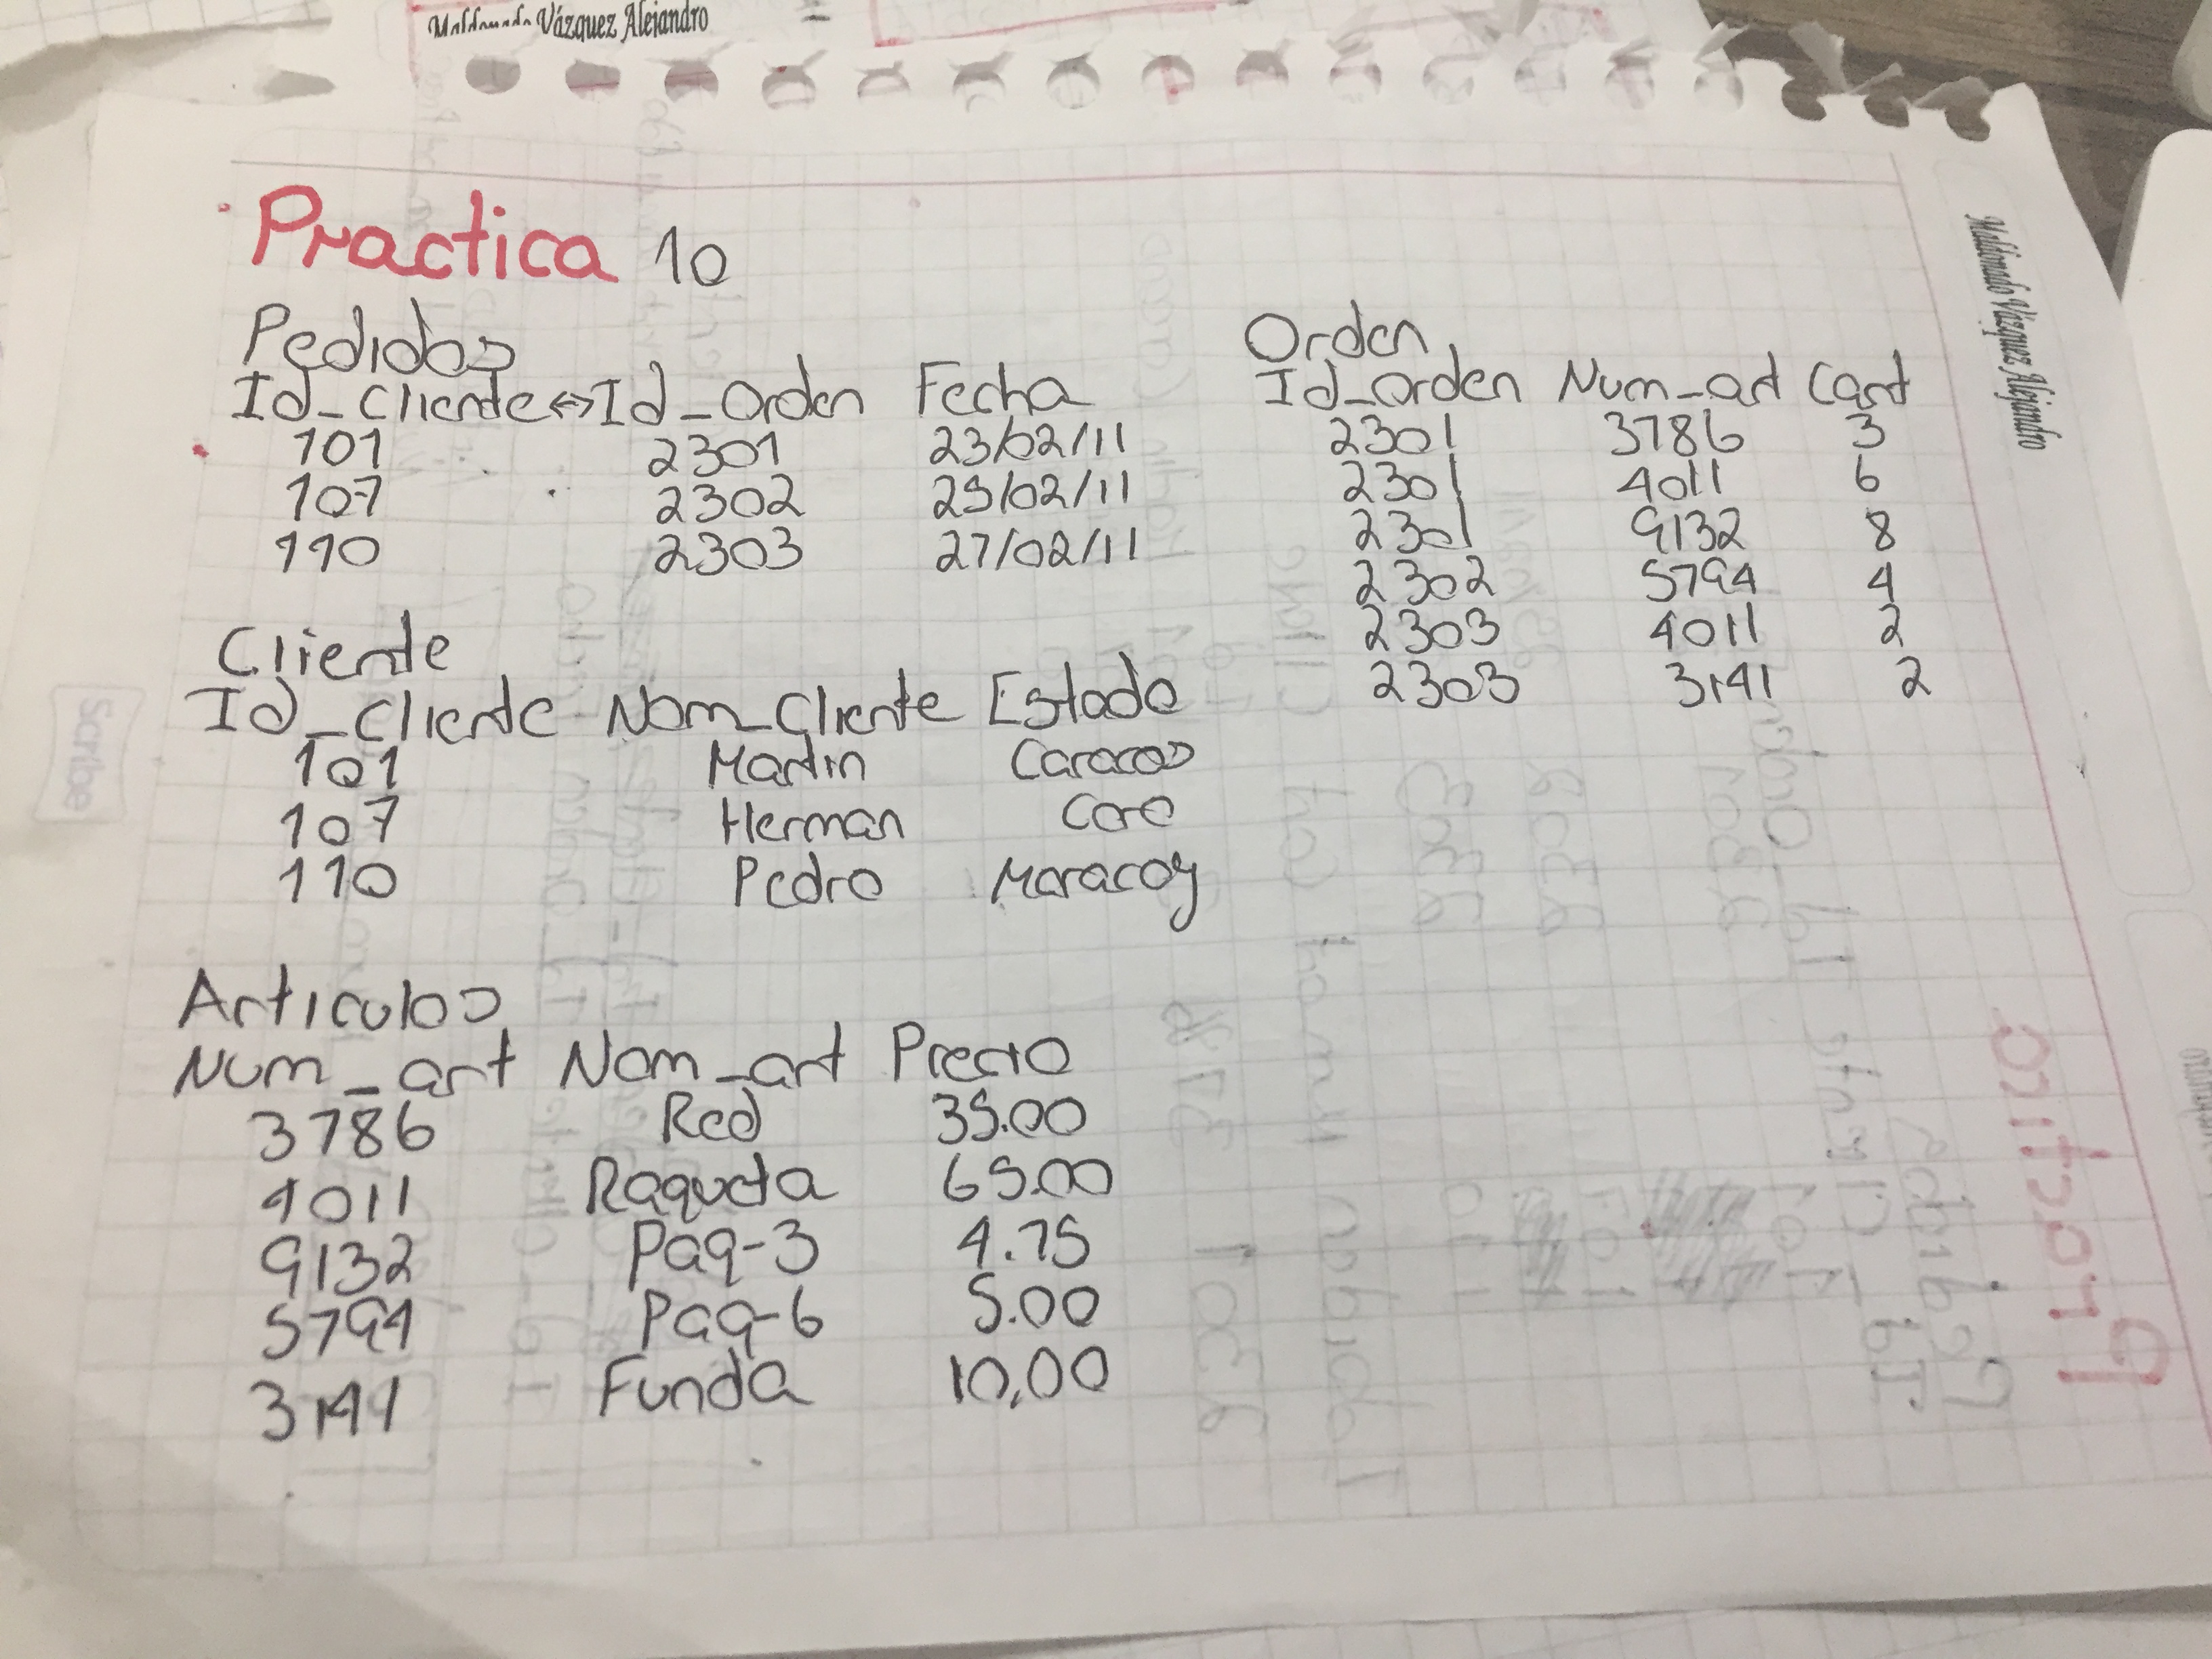 Maldonado Vázquez Alejandro
Practica 10
Pedidos
Id_Cliente↔Id_Orden Fecha
101 2301 23/02/11
107 2302 25/02/11
110 2303 27/02/11
Orden
Id_orden Num_art Cant
2301 3786 3
2301 4011 6
2301 9132 8
2302 5794 4
2303 4011 2
2303 3141 2
Cliente
Id_Cliente Nom_Cliente Estado
101 Martin Caracas
107 Herman Coro
110 Pedro Maracay
Articulos
Num_art Nom_art Precio
3786 Red 35.00
4011 Raqueta 65.00
9132 Paq-3 4.75
5794 Paq-6 5.00
3141 Funda 10,00
Maldonado Vázquez Alejandro
Scribe
Practica